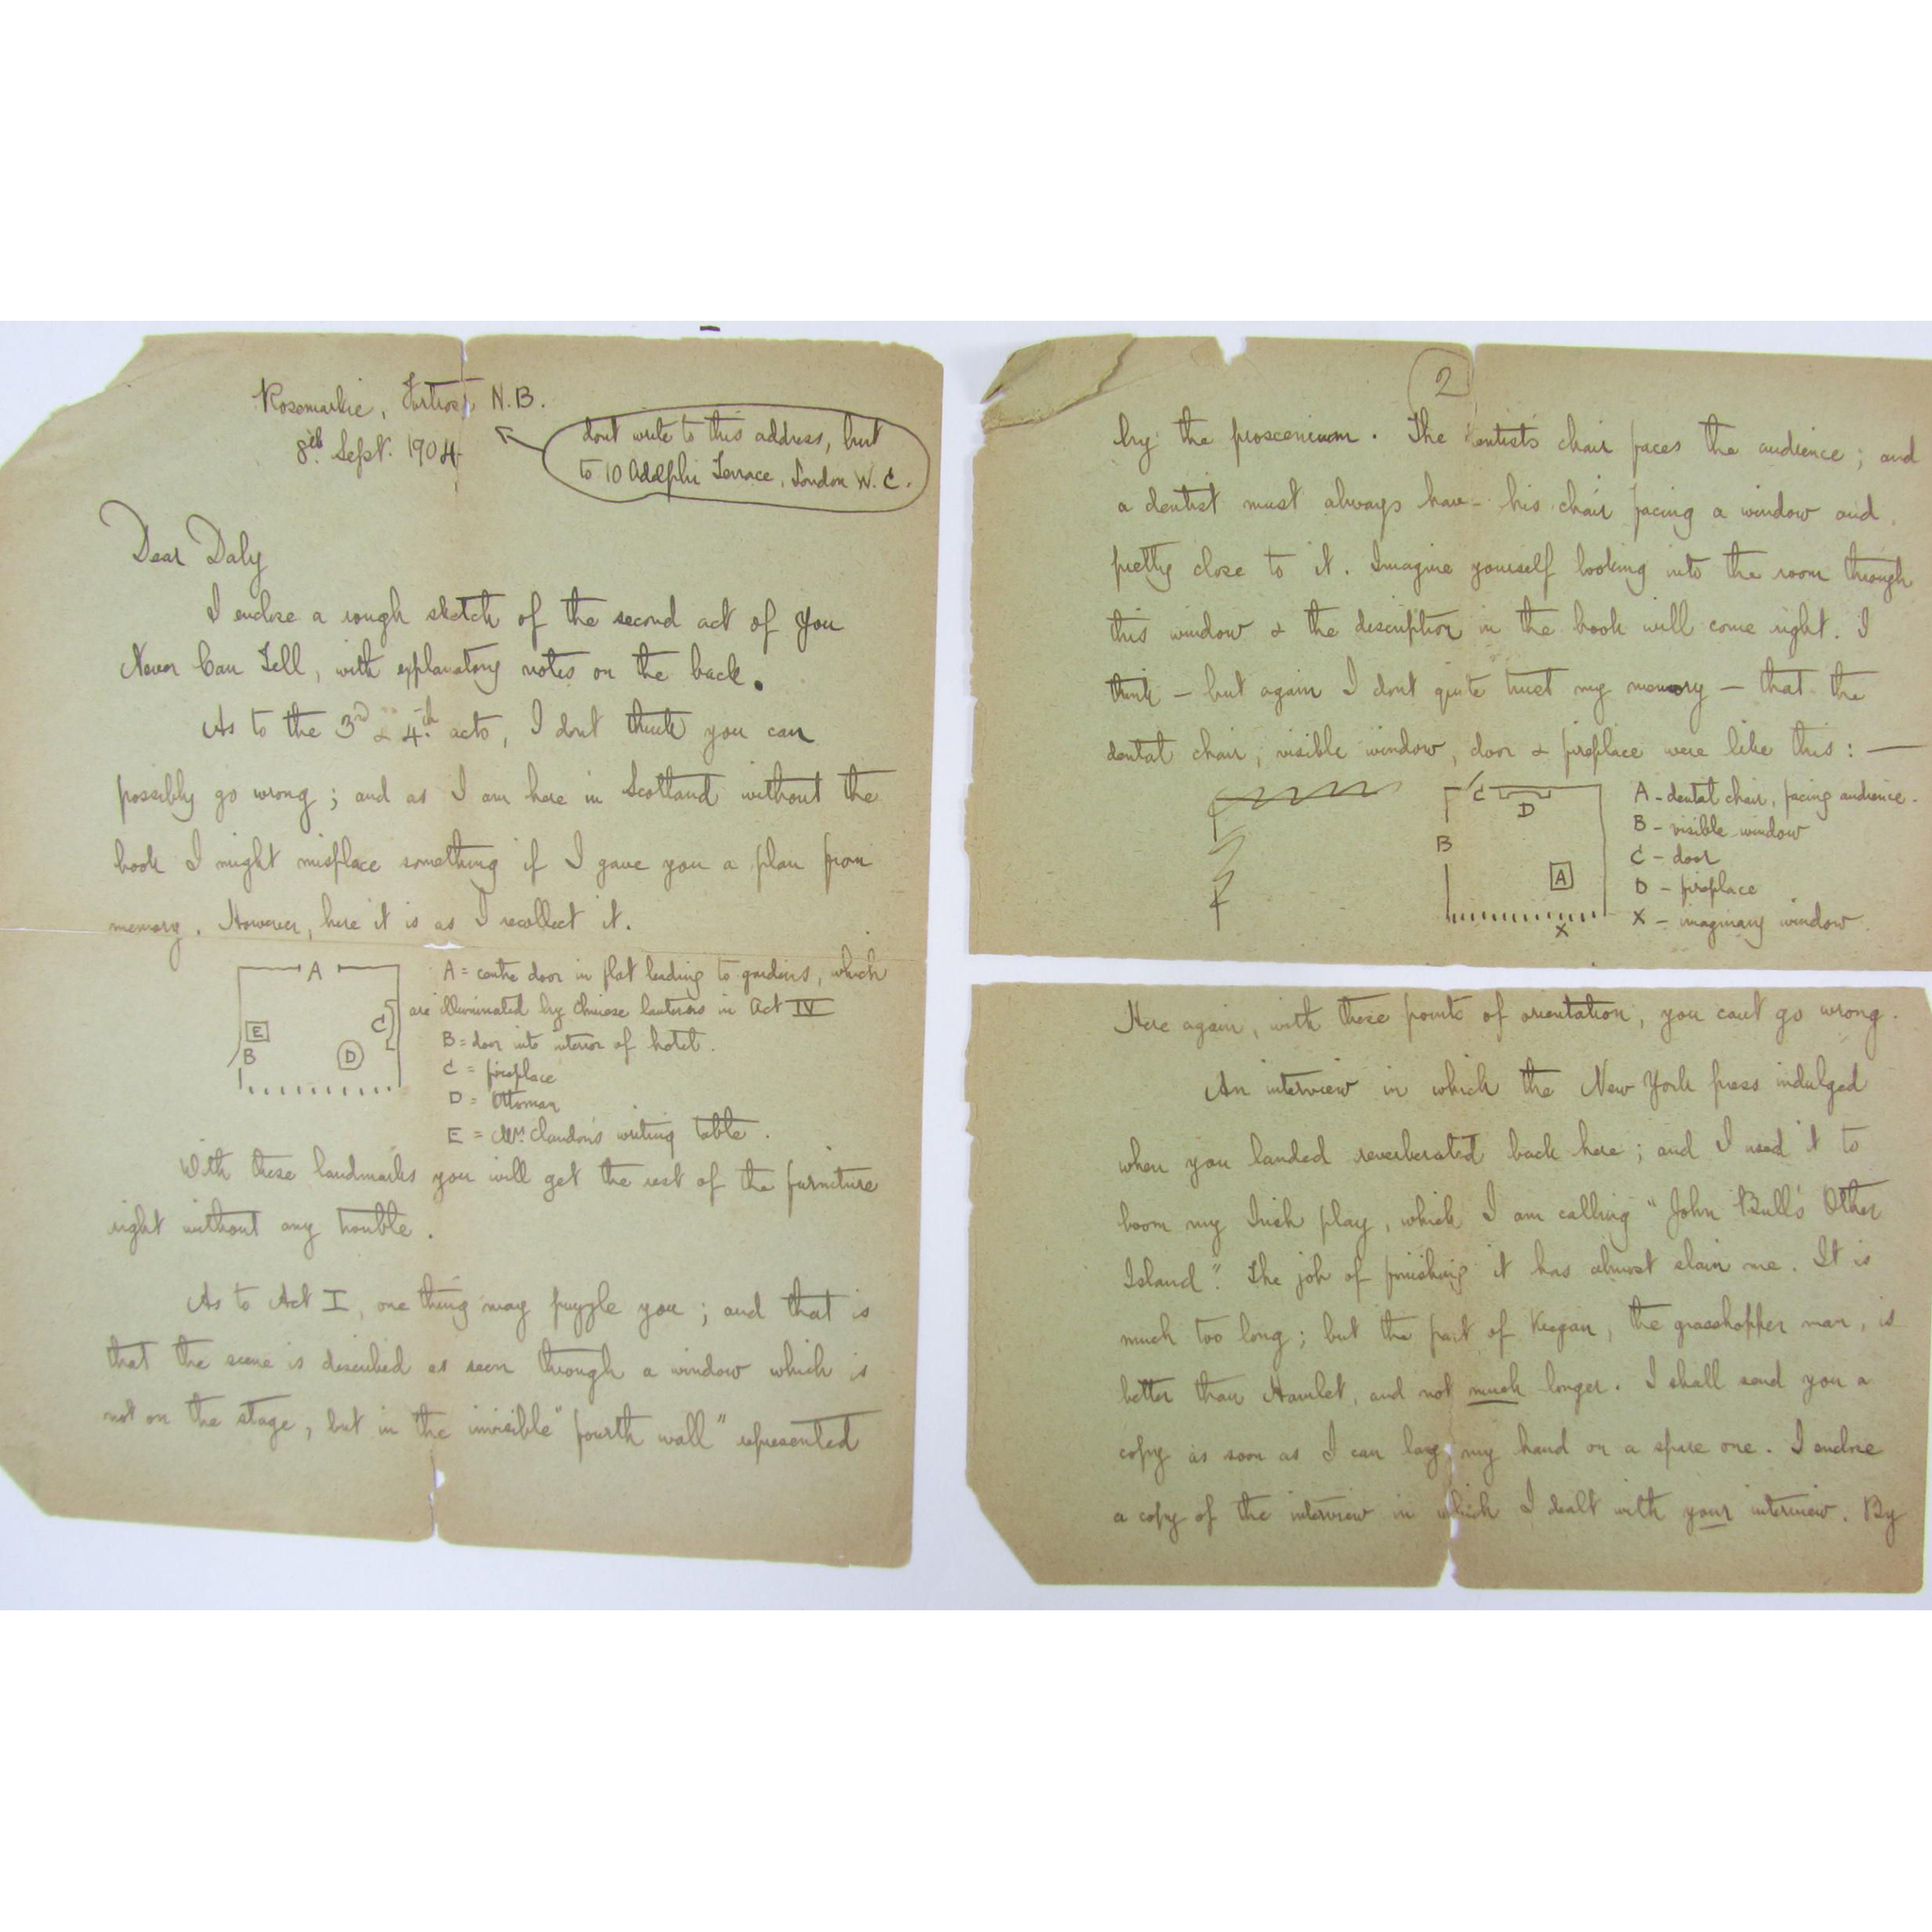 Rosemarkie, Fortrose, N.B.
8th Sept. 1904
dont write to this address, but
to 10 Adelphi Terrace, London W.C.
Dear Daly
I enclose a rough sketch of the second act of You
Never Can Tell, with explanatory notes on the back.
As to the 3rd & 4th acts, I dont think you can
possibly go wrong; and as I am here in Scotland without the
book I might misplace something if I gave you a plan from
memory. However, here it is as I recollect it.
A
E
B
C
D
A = centre door in flat leading to gardens, which
are illuminated by Chinese lanterns in Act IV
B = door into interior of hotel.
C = fireplace
D = Ottoman
E = Mrs. Clandon's writing table.
With these landmarks you will get the rest of the furniture
right without any trouble.
As to Act I, one thing may puzzle you; and that is
that the scene is described as seen through a window which is
not on the stage, but in the invisible "fourth wall" represented
2
by the proscenium. The dentist's chair faces the audience; and
a dentist must always have his chair facing a window and
pretty close to it. Imagine yourself looking into the room through
this window & the description in the book will come right. I
think – but again I dont quite trust my memory – that the
dental chair, visible window, door & fireplace were like this: —
C
D
B
A
X
A – dental chair, facing audience.
B – visible window
C – door
D – fireplace
X – imaginary window.
Here again, with these points of orientation, you cant go wrong.
An interview in which the New York press indulged
when you landed reverberated back here; and I used it to
boom my Irish play, which I am calling "John Bull's Other
Island". The job of finishing it has almost slain me. It is
much too long; but the part of Keegan, the grasshopper man, is
better than Hamlet, and not much longer. I shall send you a
copy as soon as I can lay my hand on a spare one. I enclose
a copy of the interview in which I dealt with your interview. By